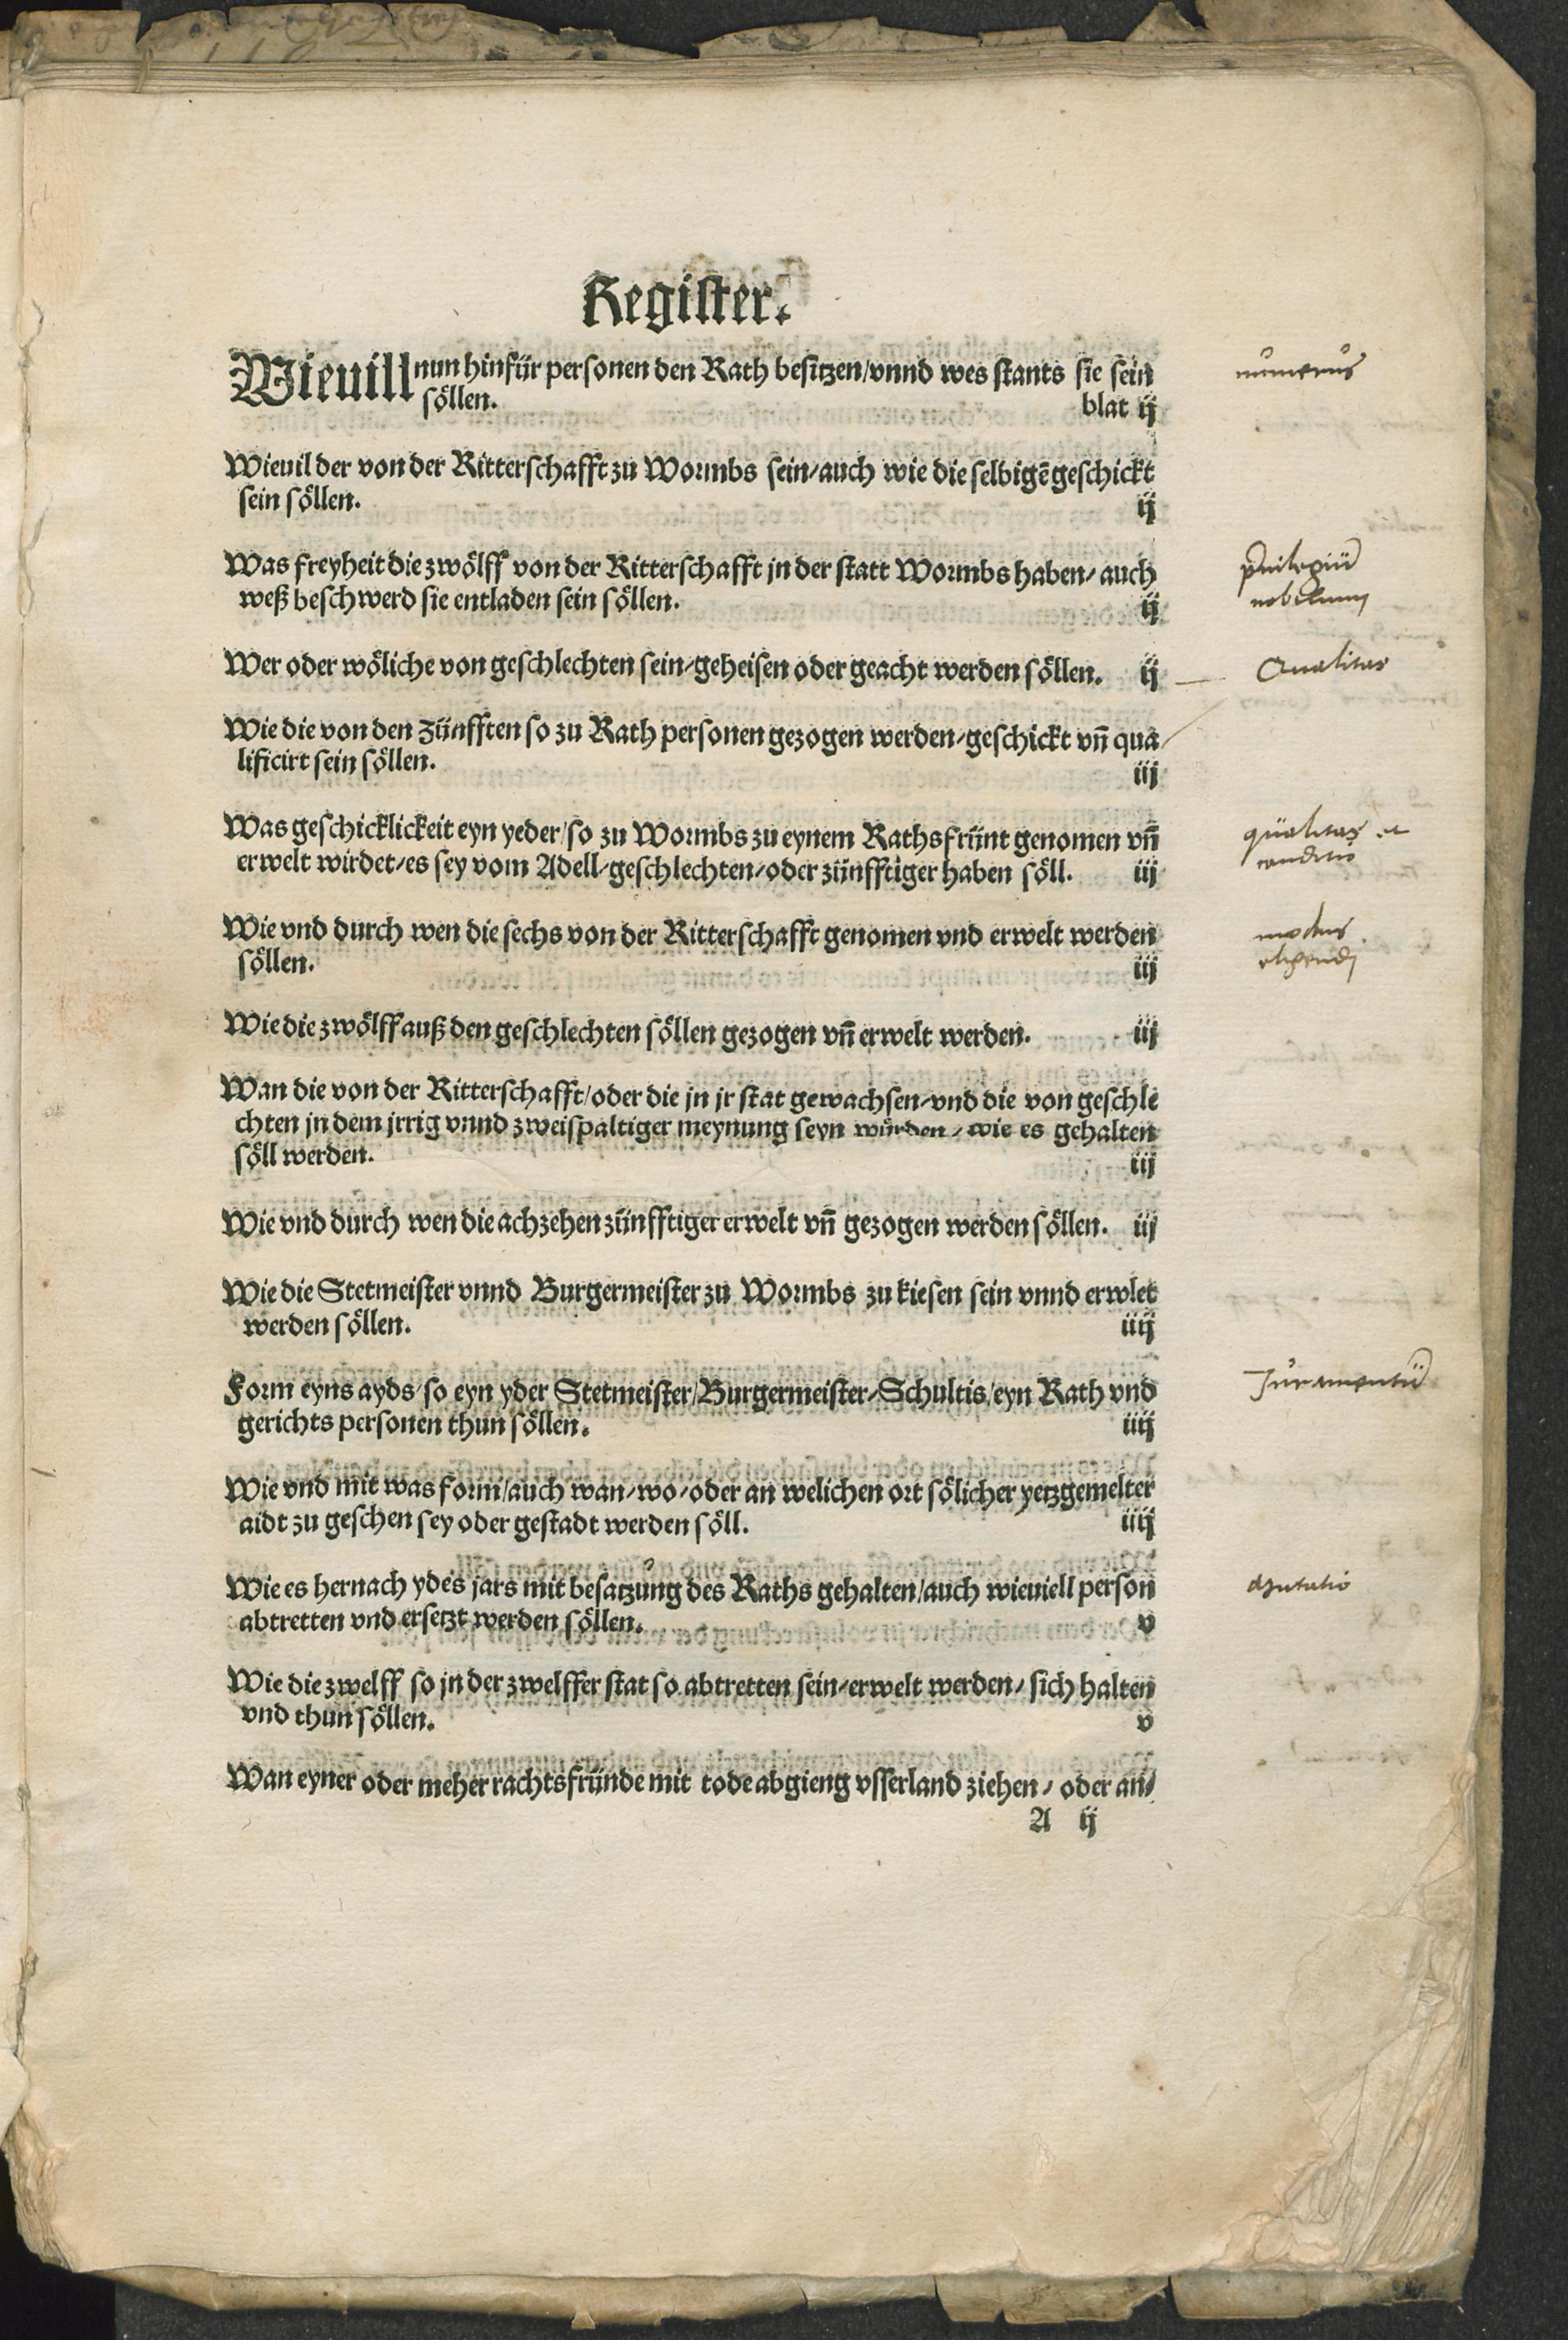 Register.
Wieuill nun hinfür personen den Rath besitzen/vnnd wes stants sie sein
söllen. blat ij
numerus
Wieuil der von der Ritterschafft zu Wormbs sein/auch wie die selbigē geschickt
sein söllen. ij
Was freyheit die zwölff von der Ritterschafft jn der statt Wormbs haben/auch
weß beschwerd sie entladen sein söllen. ij
nobilium
Wer oder wöliche von geschlechten sein/geheisen oder geacht werden söllen. ij
Qualitas
Wie die von den Zünfften so zu Rath personen gezogen werden/geschickt vñ qua/
lificirt sein söllen. iij
Was geschicklickeit eyn yeder/so zu Wormbs zu eynem Rathsfrünt genomen vñ
erwelt wirdet/es sey vom Adell/geschlechten/oder zünfftiger haben söll. iij
qualitas et
conditio
Wie vnd durch wen die sechs von der Ritterschafft genomen vnd erwelt werden
söllen. iij
modus
eligendj
Wie die zwölff auß den geschlechten söllen gezogen vñ erwelt werden. iij
Wan die von der Ritterschafft/oder die jn jr stat gewachsen/vnd die von geschle
chten jn dem jrrig vnnd zweispaltiger meynung seyn würden/wie es gehalten
söll werden. iij
Wie vnd durch wen die achzehen zünfftiger erwelt vñ gezogen werden söllen. iij
Wie die Stetmeister vnnd Burgermeister zu Wormbs zu kiesen sein vnnd erwlet
werden söllen. iiij
Form eyns ayds/so eyn yder Stetmeister/Burgermeister/Schultis/eyn Rath vnd
gerichts personen thun söllen. iiij
Juramentū
Wie vnd mit was form/auch wan/wo/oder an welichen ort sölicher yetzgemelter
aidt zu geschen sey oder gestadt werden söll. iiij
Wie es hernach ydes jars mit besatzung des Raths gehalten/auch wieuiell person
abtretten vnd ersetzt werden söllen. v
Wie die zwelff so jn der zwelffer stat so abtretten sein/erwelt werden/sich halten
vnd thun söllen. v
Wan eyner oder meher rachtsfründe mit tode abgieng vsserland ziehen/oder an/
A ij